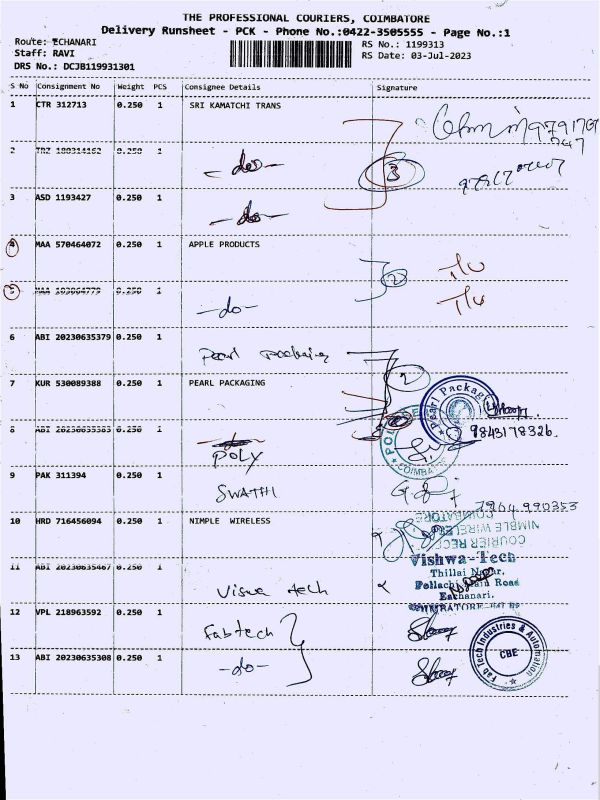 THE PROFESSIONAL COURIERS, COIMBATORE
Delivery Runsheet - PCK - Phone No.:0422-3505555 - Page No.:1
Route: ECHANARI
RS No.: 1199313
Staff: RAVI
RS Date: 03-Jul-2023
DRS No.: DCJB119931301
S No Consignment No Weight PCS Consignee Details Signature
1 CTR 312713 0.250 1 SRI KAMATCHI TRANS
2 TRZ 180314162 0.250 1 -do-
3
3 ASD 1193427 0.250 1 -do-
4 MAA 570464072 0.250 1 APPLE PRODUCTS
2
5 MAA 0.250 1 -do-
6 ABI 20230635379 0.250 1 Pearl packaging
2
7 KUR 530089388 0.250 1 PEARL PACKAGING
Pearl Packagi
8 ABI 20230635383 0.250 1 POLY
9843178326
COIMBA
9 PAK 311394 0.250 1 SWATHI
10 HRD 716456094 0.250 1 NIMPLE WIRELESS
COIMBATORE
NIMBLE WIRELE
COURIER REC
11 ABI 20230635467 0.250 1 Viswa tech
Vishwa-Tech
Thillai Nagar,
Pollachi Main Road
Eachanari.
12 VPL 218963592 0.250 1 Fabtech
13 ABI 20230635308 0.250 1 -do-
Fab Tech Industries & Automation
CBE